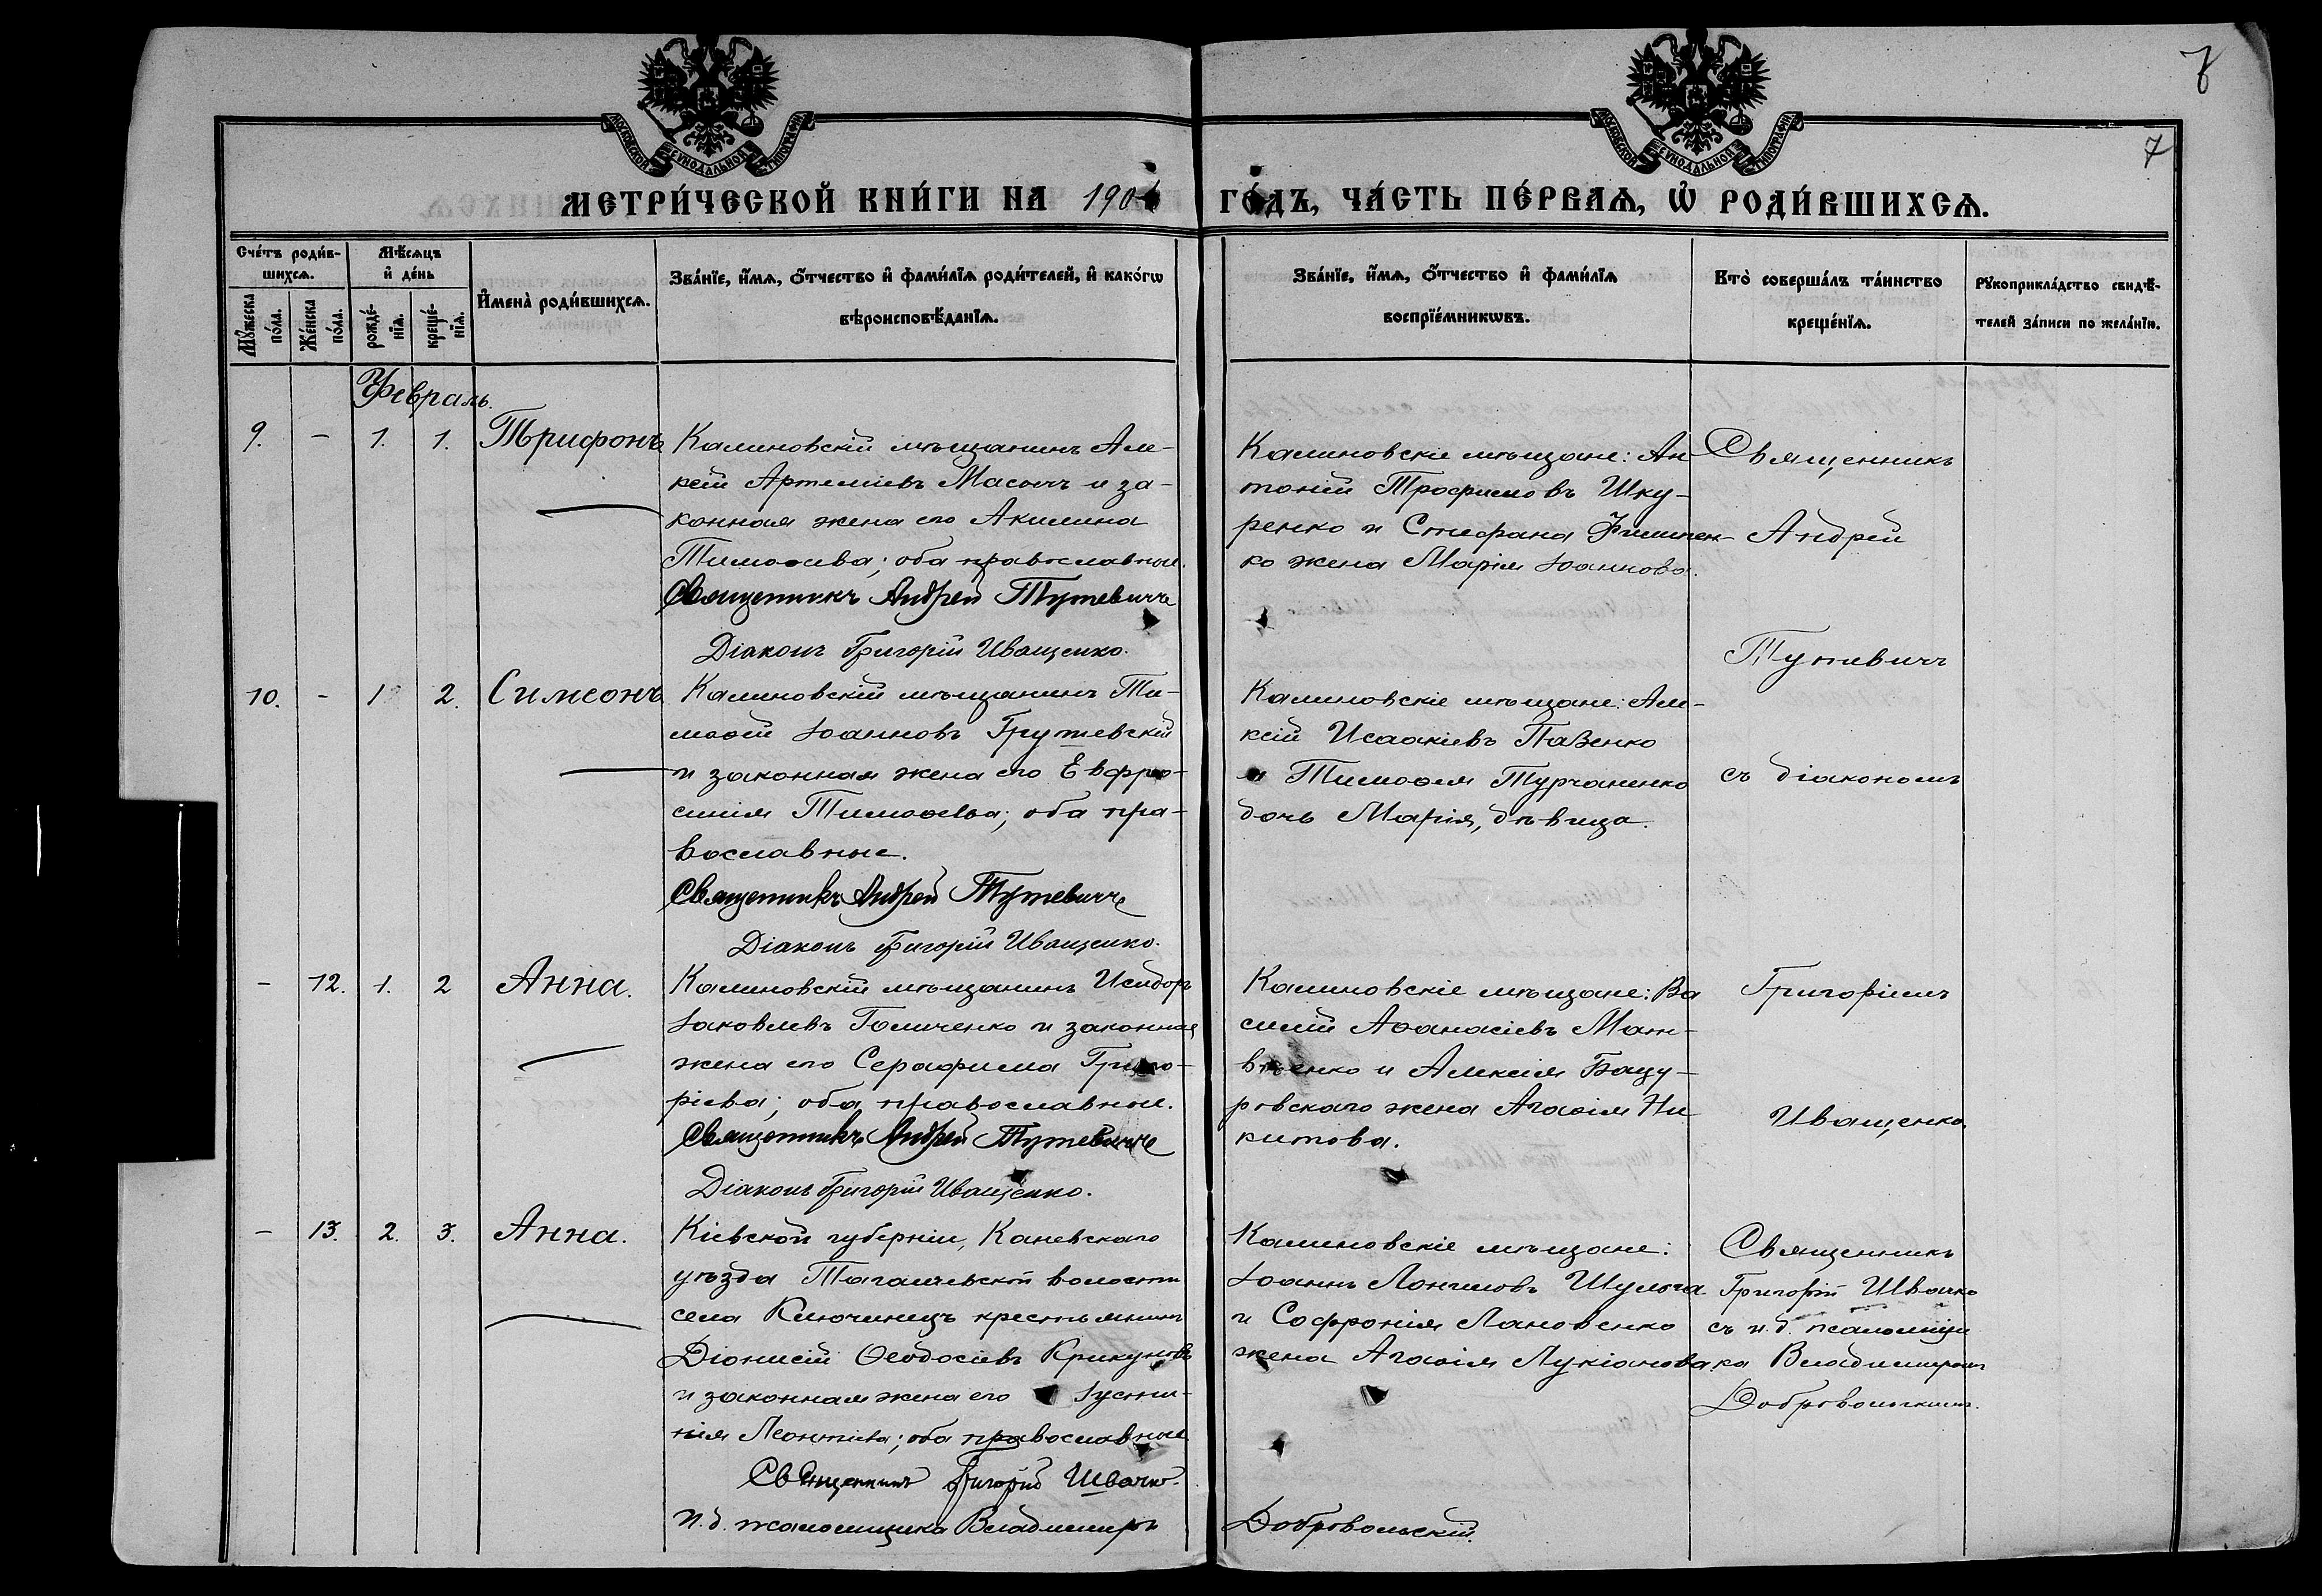 7
7
МОСКОВСКОЙ СѴНОДАЛЬНОЙ ТИПОГРАФІИ
МОСКОВСКОЙ СѴНОДАЛЬНОЙ ТИПОГРАФІИ
МЕТРИ́ЧЕСКОЙ КНИ́ГИ НА 190 ГО́ДЪ, ЧА́СТЬ ПЕ́РВАѦ, Ѡ҆ РОДИ́ВШИХСѦ.
Сче́тъ роди́в-
шихсѧ.
Мꙋ́жеска по́ла.
Же́нска по́ла.
Мѣ́сѧцъ
и҆ де́нь
рожде́-нїѧ.
креще́-нїѧ.
И҆мена̀ роди́вшихсѧ.
Зва́нїе, и҆́мѧ, ѻ҆́тчество и҆ фами́лїѧ роди́телей, и҆ како́гѡ
вѣроисповѣ́данїѧ.
Зва́нїе, и҆́мѧ, ѻ҆́тчество и҆ фами́лїѧ
воспрїе́мникѡвъ.
Кто̀ соверша́лъ та́инство
креще́нїѧ.
Рꙋкоприкла́дство свидѣ́-
телей за́писи по жела́нїю.
Февраль.
9. - 1. 1. Трифонъ
Калиновскій мѣщанинъ Але-
ксій Артеміевъ Масычъ и за-
конная жена его Акилина
Тимоѳеева; оба православные.
Священникъ Андрей Тутевичъ
Діаконъ Григорій Иващенко.
Калиновскіе мѣщане: Ан-
тоній Трофимовъ Шку-
ренко и Стефана Филипен-
ко жена Марія Іоаннова.
Священникъ
Андрей
Тутевичъ
10. - 1 2. Симеонъ
Калиновскій мѣщанинъ Ти-
моѳей Іоанновъ Грутевскій
и законная жена его Евфро-
синія Тимоѳеева; оба пра-
вославные.
Священникъ Андрей Тутевичъ
Діаконъ Григорій Иващенко.
Калиновскіе мѣщане: Але-
ксій Исаакіевъ Павенко
и Тимоѳея Турчаненко
дочь Марія, дѣвица.
съ діакономъ
- 12. 1. 2 Анна.
Калиновскій мѣщанинъ Исидоръ
Іаковлевъ Голиченко и законная
жена его Серафима Григо-
ріева; оба православные.
Священникъ Андрей Тутевичъ
Діаконъ Григорій Иващенко.
Калиновскіе мѣщане: Ва
силій Аѳанасіевъ Мат-
вѣенко и Алексія Бацу-
ровскаго жена Агаѳія Ни
китова.
Григоріемъ
Иващенко
- 13. 2. 3. Анна.
Кіевской губерніи, Каневскаго
уѣзда Таганчевской волости
села Ключницъ крестьянинъ
Діонисій Ѳеодосіевъ Крикуновъ
и законная жена его Іусти-
нія Леонтіева; оба православные
Священникъ Григорій Швачко.
И. д. псаломщика Владимиръ Добровольскій.
Калиновскіе мѣщане:
Іоаннъ Лонгиновъ Шульга
и Софронія Лановенко
жена Агаѳія Лукіанова
Священникъ
Григорій Швачко
съ и. д. псаломщи
ка Владимиромъ
Добровольскимъ.